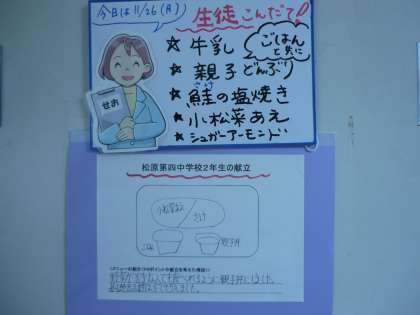 今日は11/26(月)
生徒こんだて!
☆牛乳
ごはんと共に
☆親子どんぶり
さけ
☆鮭の塩焼き
☆小松菜あえ
☆シュガーアーモンド
せお
松原第四中学校2年生の献立
小松菜あえ
さけ
ごはん
親子丼